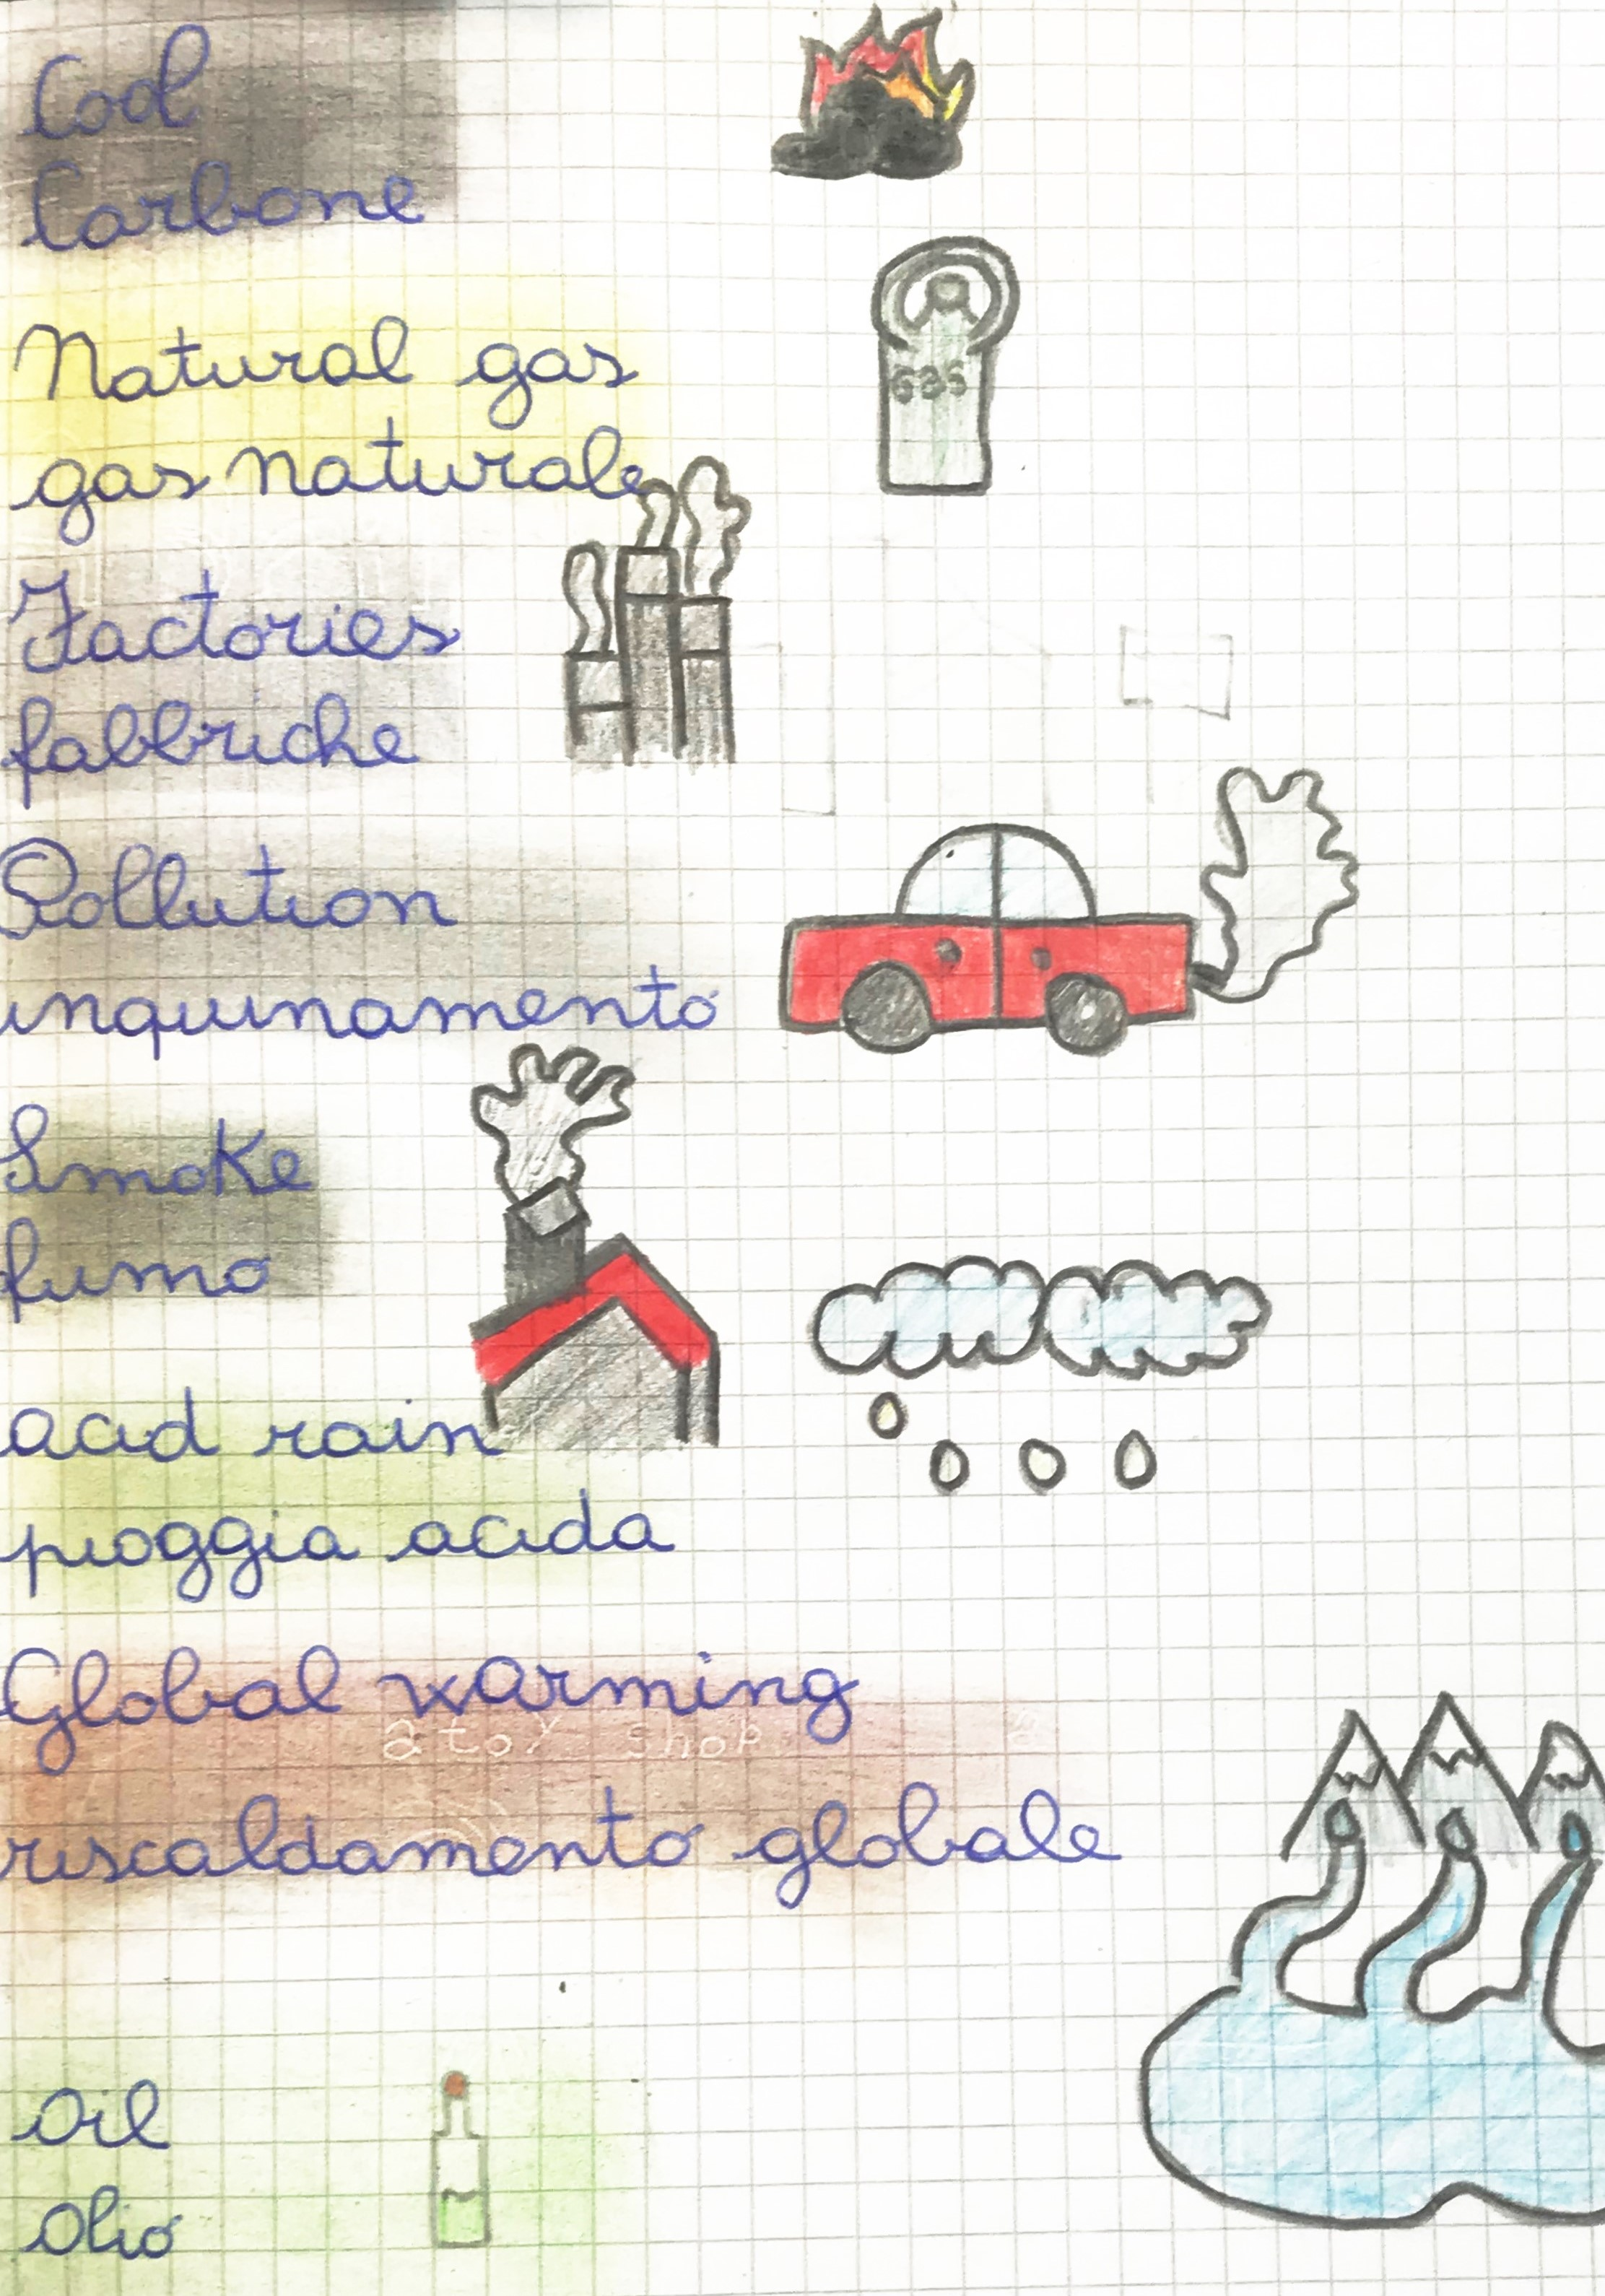 Coal
Carbone
Natural gas
Gas
gas naturale
Factories
fabbriche
Pollution
inquinamento
Smoke
fumo
acid rain
pioggia acida
Global warming
a toy shop
riscaldamento globale
Oil
Olio